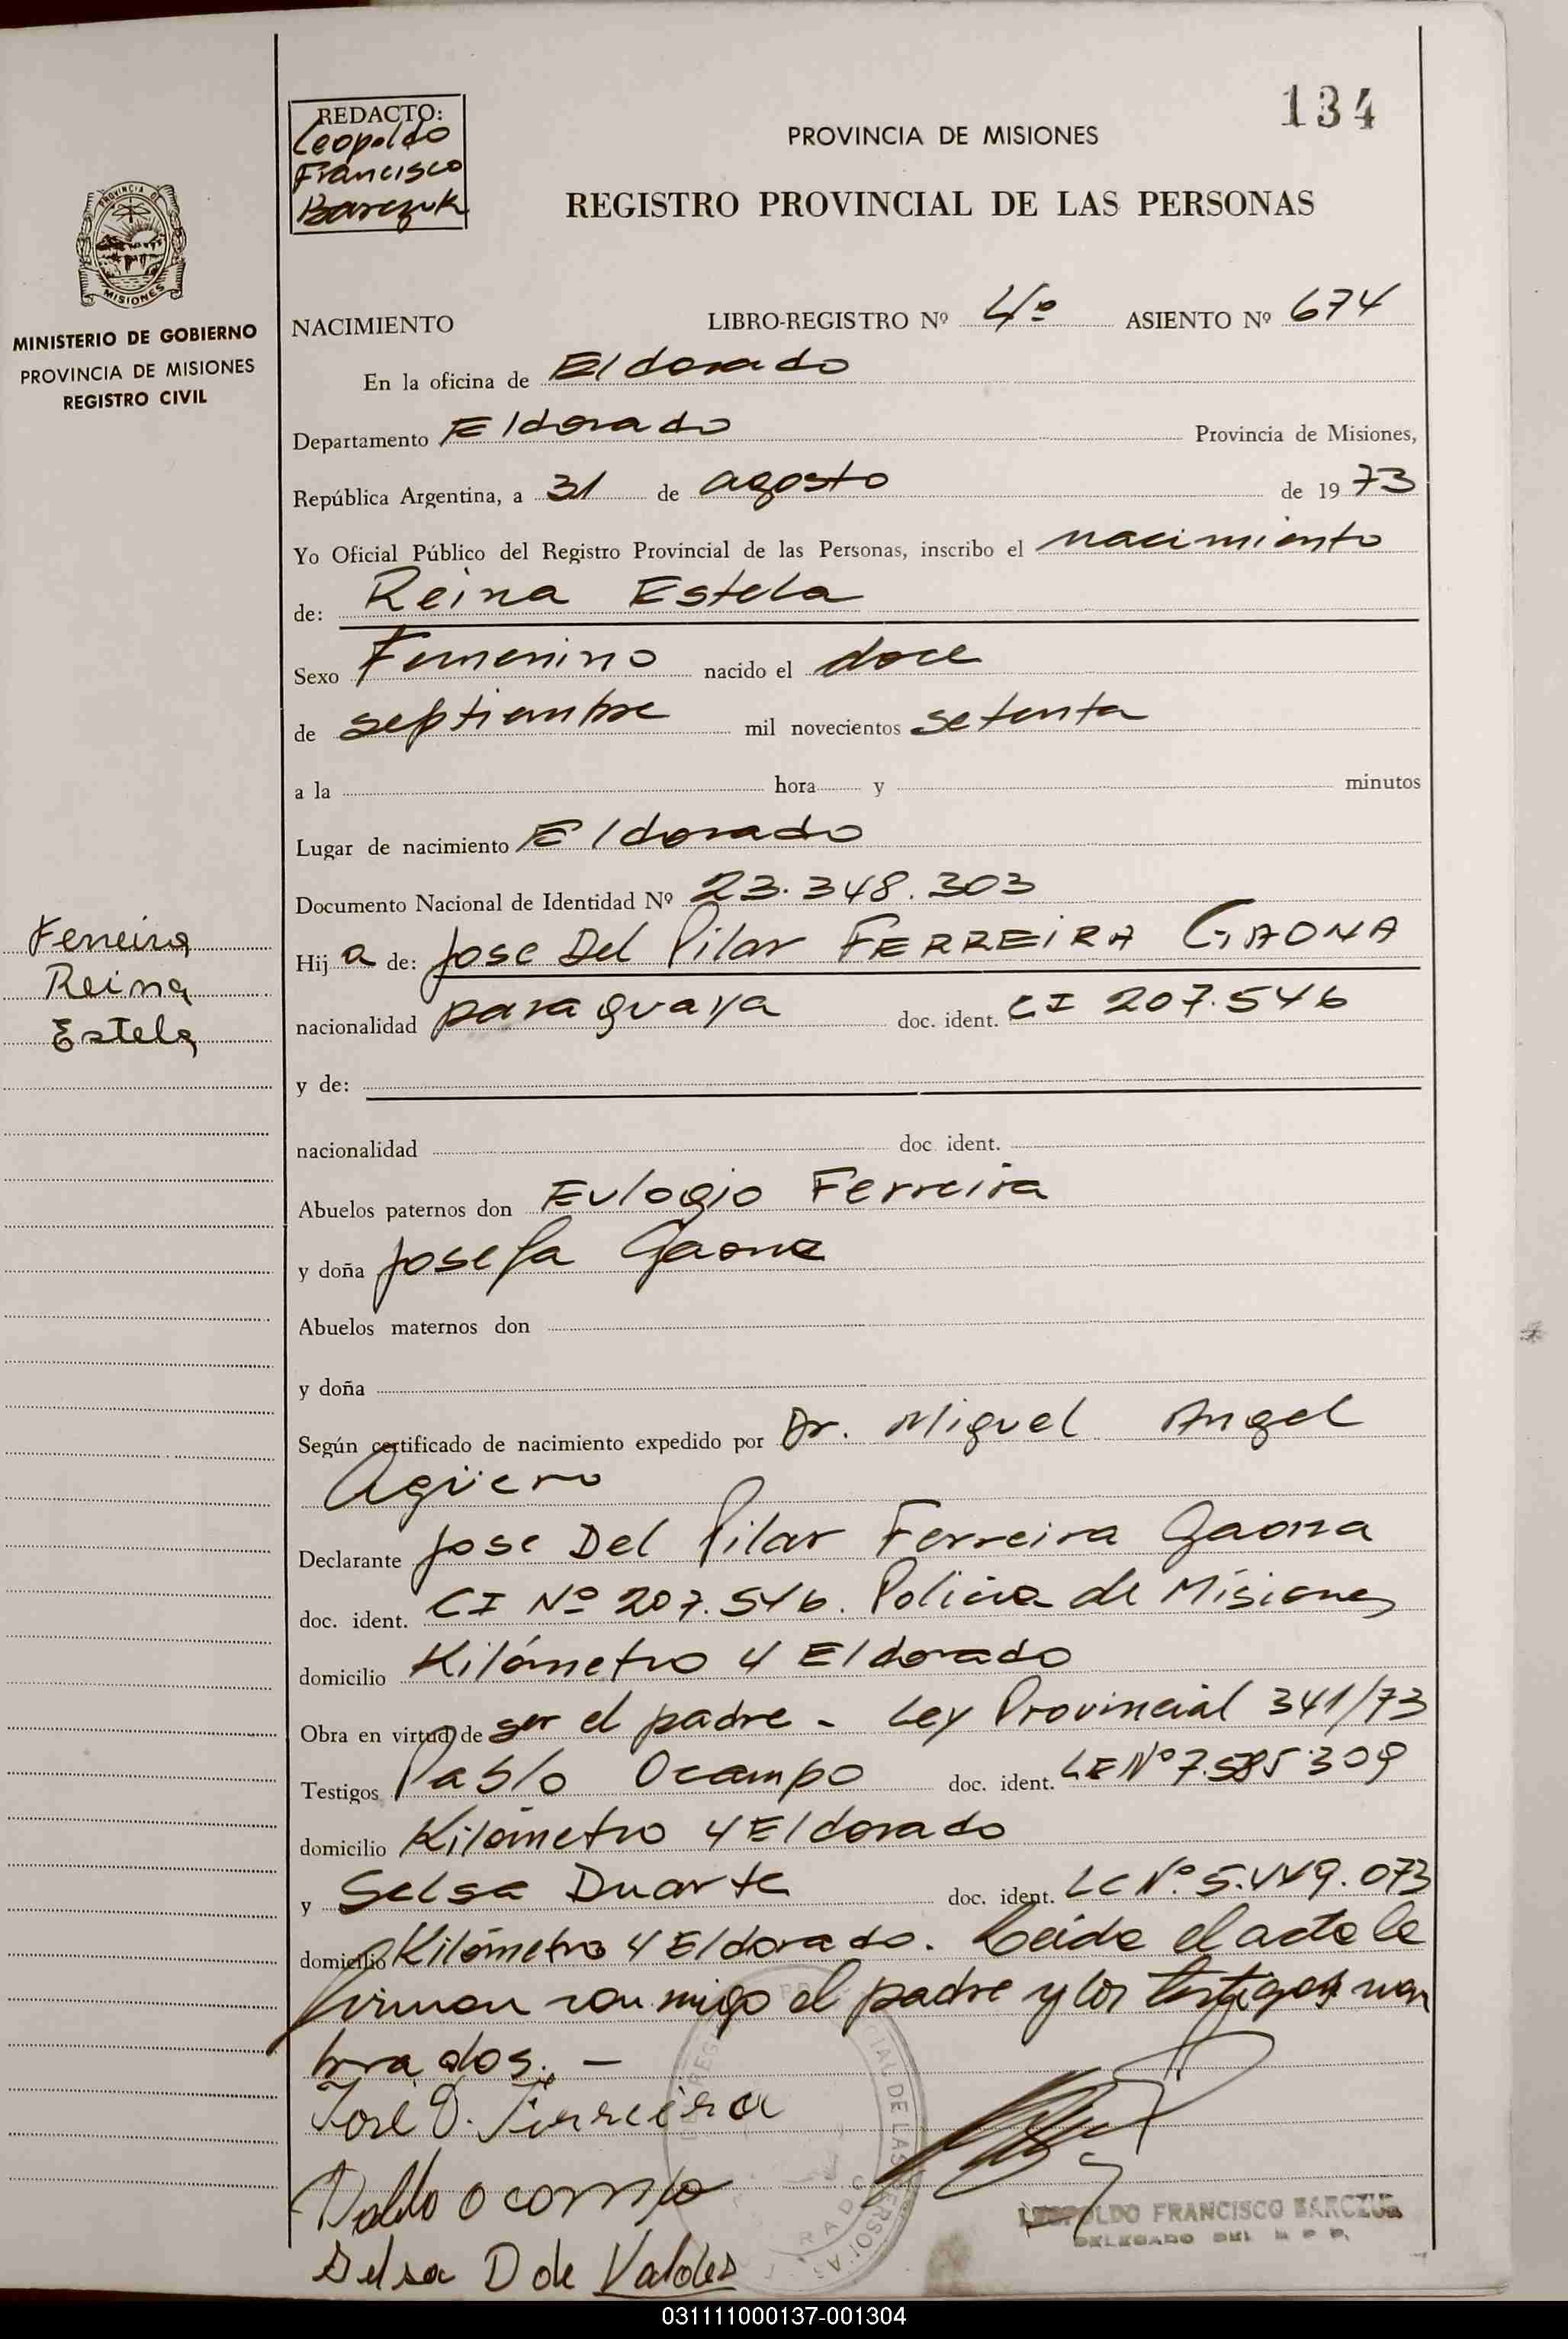 134
REDACTO:
Leopoldo
Francisco
Barczuk
PROVINCIA DE MISIONES
REGISTRO PROVINCIAL DE LAS PERSONAS
PROVINCIA DE
MISIONES
MINISTERIO DE GOBIERNO
PROVINCIA DE MISIONES
REGISTRO CIVIL
NACIMIENTO LIBRO-REGISTRO Nº 4º ASIENTO Nº 674
En la oficina de Eldorado
Departamento Eldorado Provincia de Misiones,
República Argentina, a 31 de agosto de 1973
Yo Oficial Público del Registro Provincial de las Personas, inscribo el nacimiento
de: Reina Estela
Sexo Femenino nacido el doce
de septiembre mil novecientos setenta
a la hora y minutos
Lugar de nacimiento Eldorado
Documento Nacional de Identidad Nº 23.348.303
Ferreira
Reina
Estela
Hij a de: Jose Del Pilar FERREIRA GAONA
nacionalidad paraguaya doc. ident. CI 207.546
y de:
nacionalidad doc. ident.
Abuelos paternos don Eulogio Ferreira
y doña Josefa Gaona
Abuelos maternos don
y doña
Según certificado de nacimiento expedido por Dr. Miguel Angel
Agüero
Declarante Jose Del Pilar Ferreira Gaona
doc. ident. CI Nº 207.546. Policia de Misiones
domicilio Kilómetro 4 Eldorado
Obra en virtud de ser el padre - Ley Provincial 341/73
Testigos Pablo Ocampo doc. ident. LE Nº 7.585.309
domicilio Kilómetro 4 Eldorado
y Selsa Duarte doc. ident. LC Nº. 5.449.073
domicilio Kilómetro 4 Eldorado. Leida el acta la
firman conmigo el padre y los testigos nom
brados. -
José D. Ferreira
Pablo Ocampo
Selsa D de Valdes
LEOPOLDO FRANCISCO BARCZUK
DELEGADO DEL R P P.
031111000137-001304